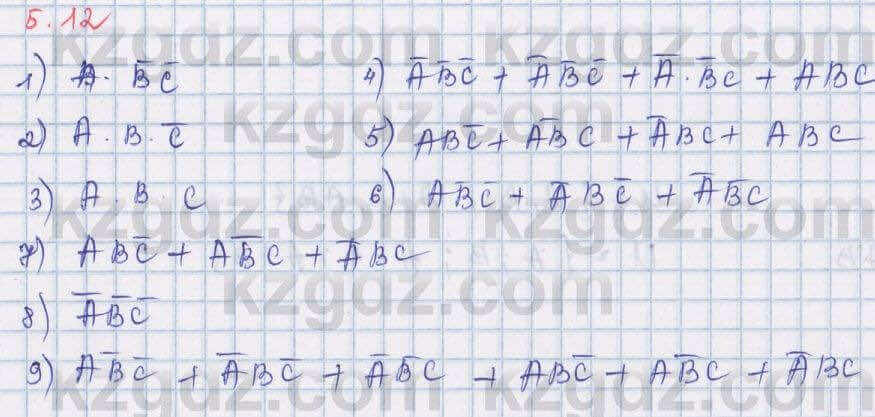 5.12
1) A · B̅ C̅
4) A̅ B̅ C̅ + A̅ B̅ C̅ + A̅ · B̅ C + A B C
2) A · B · C̅
5) A B C̅ + A B̅ C + A̅ B C + A B C
3) A · B · C
6) A B̅ C̅ + A̅ B C̅ + A̅ B̅ C
7) A B C̅ + A B̅ C + A̅ B C
8) A̅ B̅ C̅
9) A B̅ C̅ + A̅ B C̅ + A̅ B̅ C + A B C̅ + A B̅ C + A̅ B C
kzgdz.com
kzgdz.com
kzgdz.com
kzgdz.com
kzgdz.com
kzgdz.com
kzgdz.com
kzgdz.com